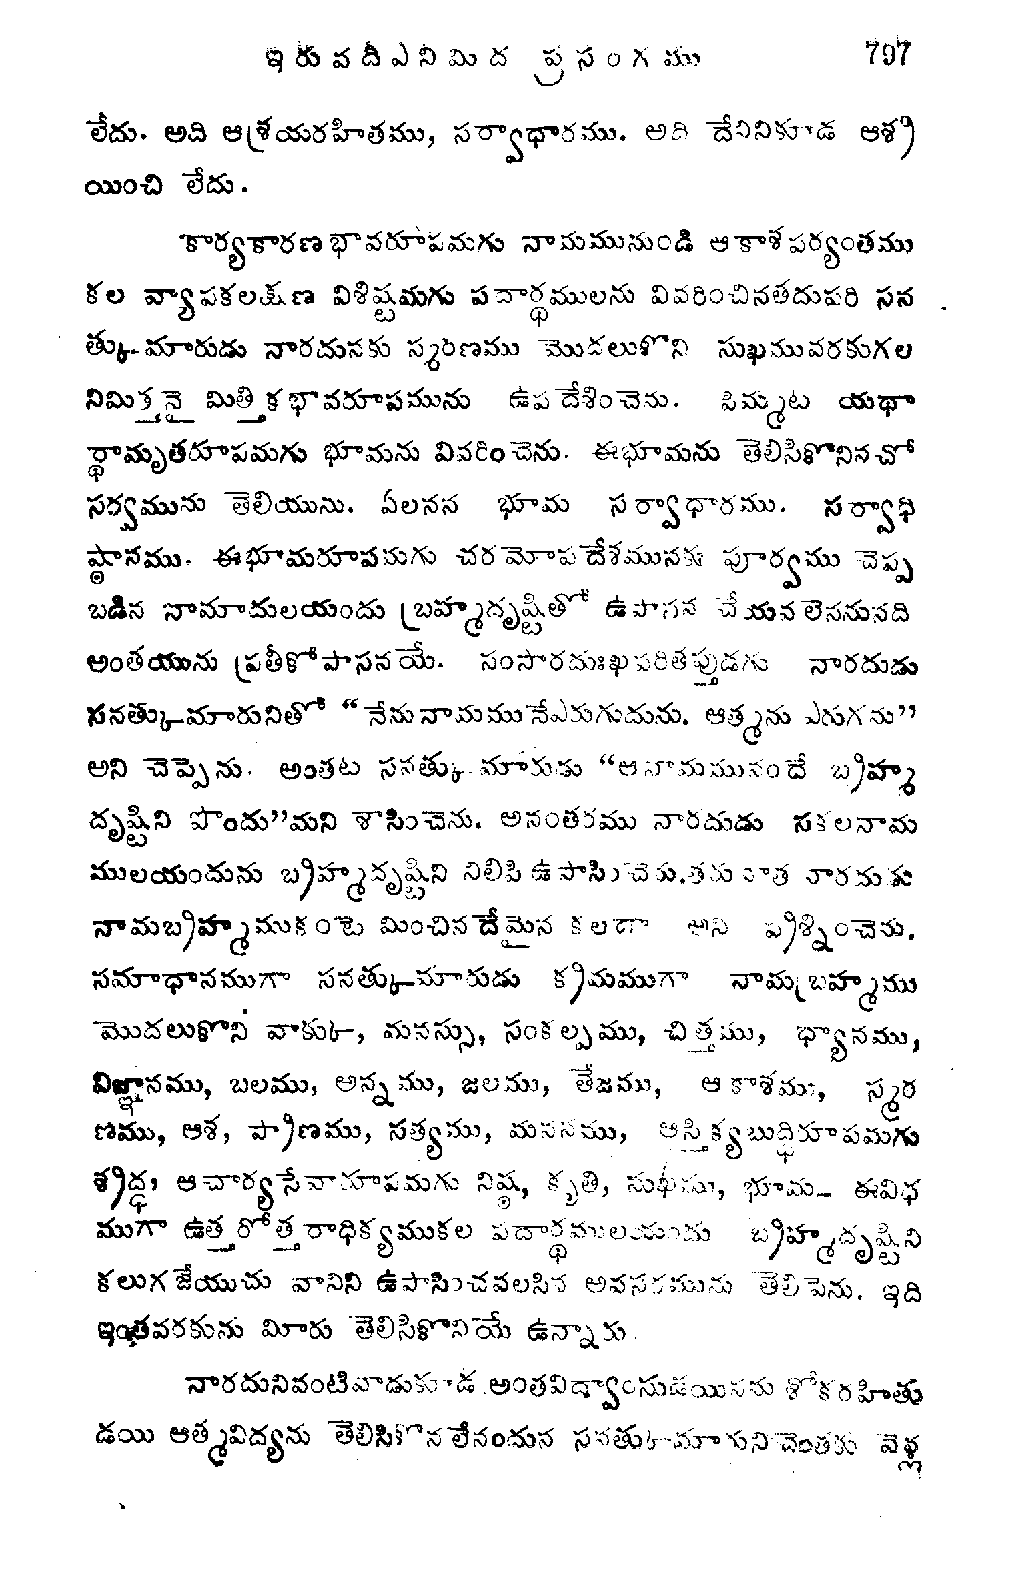 ఇరువదీఎనిమిద ప్రసంగము 797
లేదు. అది ఆశ్రయరహితము, సర్వాధారము. అది దేనినికూడ ఆశ్ర
యించి లేదు.
కార్యకారణభావరూపమగు నామమునుండి ఆకాశపర్యంతము
కల వ్యాపకలక్షణ విశిష్టమగు పదార్థములను వివరించినతదుపరి సన
త్కుమారుడు నారదునకు స్మరణము మొదలుకొని సుఖమువరకుగల
నిమిత్తనైమిత్తికభావరూపమును ఉపదేశించెను. పిమ్మట యథా
ర్థామృతరూపమగు భూమను వివరించెను. ఈభూమను తెలిసికొనినచో
సర్వమును తెలియును. ఏలనన భూమ సర్వాధారము. సర్వాధి
ష్ఠానము. ఈభూమరూపమగు చరమోపదేశమునకు పూర్వము చెప్ప
బడిన నామాదులయందు బ్రహ్మదృష్టితో ఉపాసన చేయవలెననునది
అంతయును ప్రతీకోపాసనయే. సంసారదుఃఖపరితప్తుడగు నారదుడు
సనత్కుమారునితో “నేను నామము నేఎరుగుదును. ఆత్మను ఎరుగను”
అని చెప్పెను. అంతట సనత్కుమారుడు “ఆనామమునందే బ్రహ్మ
దృష్టిని పొందు”మని శాసించెను. అనంతరము నారదుడు సకలనామ
ములయందును బ్రహ్మదృష్టిని నిలిపి ఉపాసించెను.తరువాత నారదుకు
నామబ్రహ్మముకంటె మించినదేమైన కలదా అని ప్రశ్నించెను.
సమాధానముగా సనత్కుమారుడు క్రమముగా నామబ్రహ్మము
మొదలుకొని వాకుకు, మనస్సు, సంకల్పము, చిత్తము, ధ్యానము,
విజ్ఞానము, బలము, అన్నము, జలము, తేజము, ఆకాశము, స్మర
ణము, ఆశ, ప్రాణము, సత్యము, మననము, ఆస్తిక్యబుద్ధిరూపమగు
శ్రద్ధ, ఆచార్యసేవారూపమగు నిష్ఠ, కృతి, సుఖము, భూమ– ఈవిధ
ముగా ఉత్తరోత్తరాధిక్యముకల పదార్థములయందు బ్రహ్మదృష్టిని
కలుగజేయుచు వానిని ఉపాసించవలసిన అవసరమును తెలిపెను. ఇది
ఇంతవరకును మీరు తెలిసికొనియే ఉన్నారు.
నారదునివంటివాడుకూడ అంతవిద్వాంసుడయినను శోకరహితు
డయి ఆత్మవిద్యను తెలిసికొనలేనందున సనత్కుమారునిచెంతకు వెళ్ల